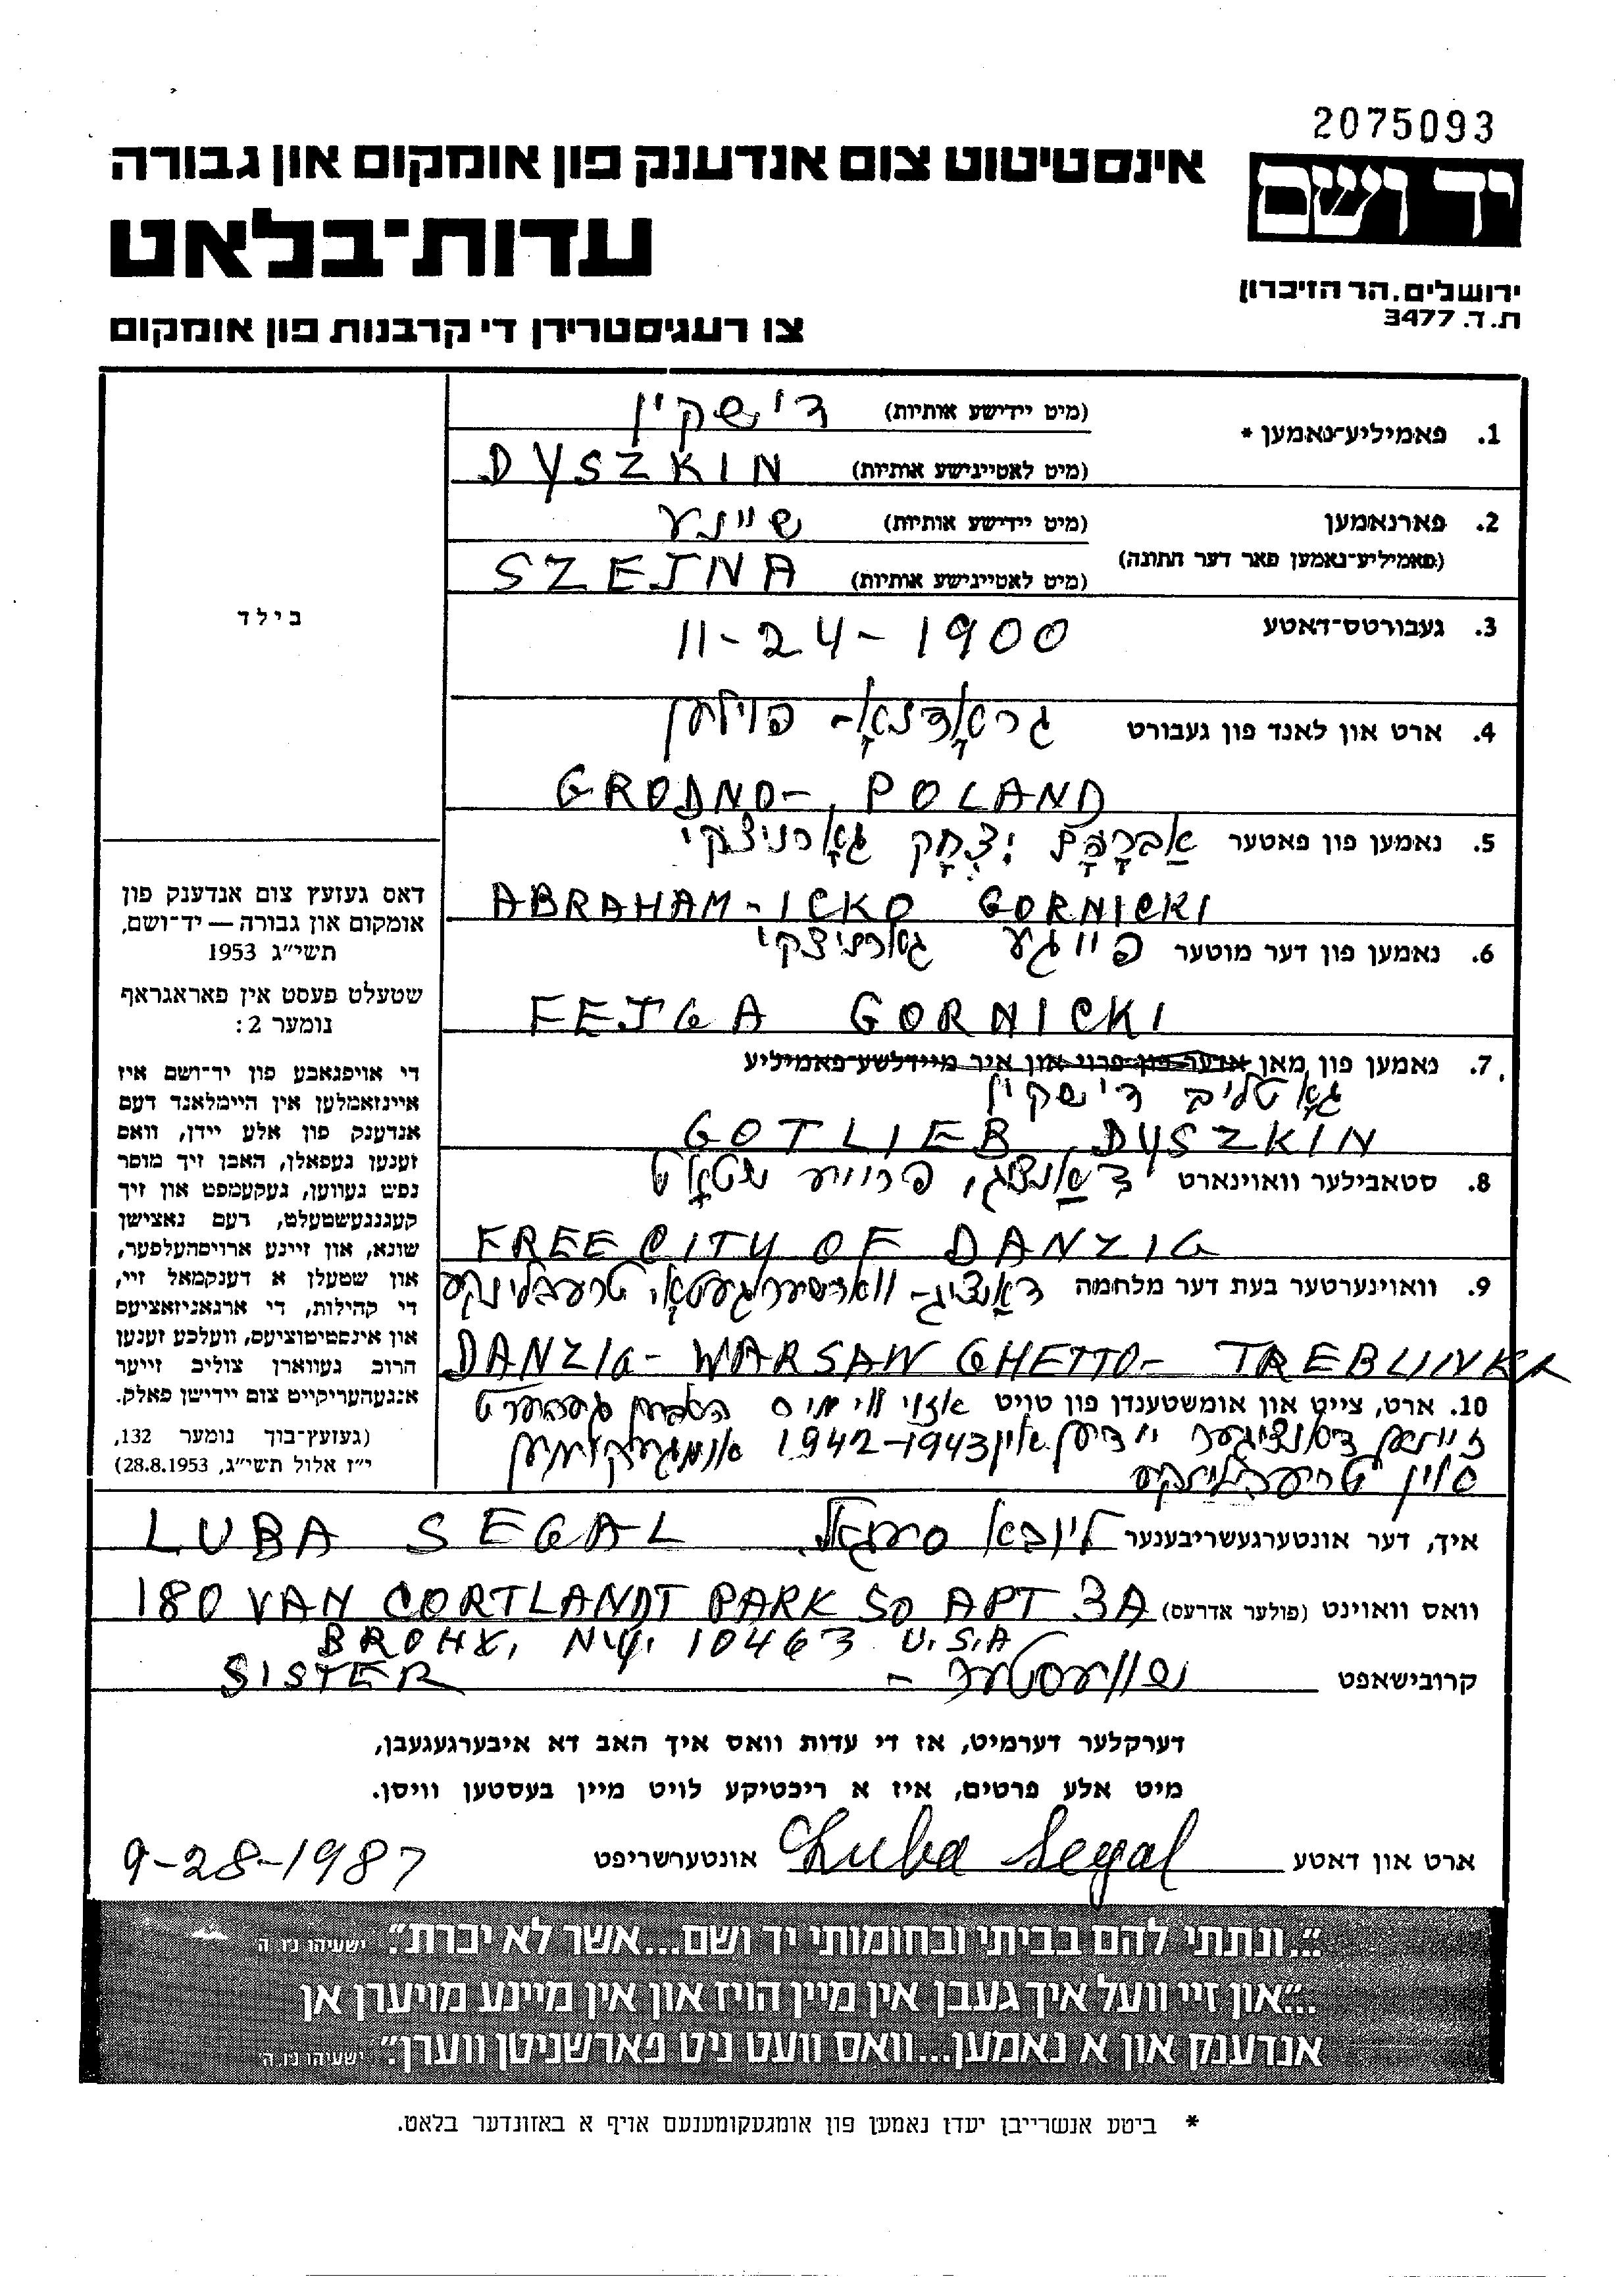 2075093
יד ושם
אינסטיטוט צום אנדענק פון אומקום און גבורה
עדות־בלאט
ירושלים. הר הזיכרון
ת.ד. 3477
צו רעגיסטרירן די קרבנות פון אומקום
1. פאמיליע־נאמען *
(מיט יידישע אותיות) דישקין
(מיט לאטיינישע אותיות) DYSZKIN
2. פארנאמען
(פאמיליע־נאמען פאר דער חתונה)
(מיט יידישע אותיות) שיינע
(מיט לאטיינישע אותיות) SZEJNA
3. געבורטס־דאטע 11-24-1900
4. ארט און לאנד פון געבורט גראָדנאָ- פוילען
GRODNO-, POLAND
5. נאמען פון פאטער אַבְרָהָם יִצְחָק גאָרניצקי
ABRAHAM-ICKO GORNICKI
6. נאמען פון דער מוטער פייגע גאָרניצקי
FEJGA GORNICKI
7. נאמען פון מאן אדער פון פרוי און איר מיידלשע־פאמיליע
גאָטליב דישקין
GOTLIEB DYSZKIN
8. סטאבילער וואוינארט דאַנציג, פרייע שטאָט
FREE CITY OF DANZIG
9. וואוינערטער בעת דער מלחמה דאַנציג- ווארשעווער געטאָ, טרעבלינקע
DANZIG- WARSAW GHETTO- TREBLINKA
10. ארט, צייט און אומשטענדן פון טויט אזוי ווי
דאנציגער יידען אין 1942-1943 אומגעקומען
אין טרעבלינקע
בילד
דאס געזעץ צום אנדענק פון
אומקום און גבורה — יד־ושם,
תשי״ג 1953
שטעלט פעסט אין פאראגראף
נומער 2:
די אויפגאבע פון יד־ושם איז
איינזאמלען אין היימלאנד דעם
אנדענק פון אלע יידן, וואס
זענען געפאלן, האבן זיך מוסר
נפש געווען, געקעמפט און זיך
קעגנגעשטעלט, דעם נאצישן
שונא, און זיינע ארויסהעלפער,
און שטעלן א דענקמאל זיי,
די קהילות, די ארגאניזאציעס
און אינסטיטוציעס, וועלכע זענען
חרוב געווארן צוליב זייער
אנגעהעריקייט צום יידישן פאלק.
(געזעץ־בוך נומער 132,
י״ז אלול תשי״ג, 28.8.1953)
איך, דער אונטערגעשריבענער ליובא סעגאל LUBA SEGAL
וואס וואוינט (פולער אדרעס) 180 VAN CORTLANDT PARK SO APT 3A
BRONX, N.Y. 10463 U.S.A
קרובישאפט שוועסטער - SISTER
דערקלער דערמיט, אז די עדות וואס איך האב דא איבערגעגעבן,
מיט אלע פרטים, איז א ריכטיקע לויט מיין בעסטען וויסן.
ארט און דאטע Luba Segal אונטערשריפט 9-28-1987
״...ונתתי להם בביתי ובחומותי יד ושם...אשר לא יכרת.״ ישעיהו נ״ו, ה
״...און זיי וועל איך געבן אין מיין הויז און אין מיינע מויערן אן
אנדענק און א נאמען...וואס וועט ניט פארשניטן ווערן.״ ישעיהו נ״ו, ה׳
* ביטע אנשרייבן יעדן נאמען פון אומגעקומענעם אויף א באזונדער בלאט.